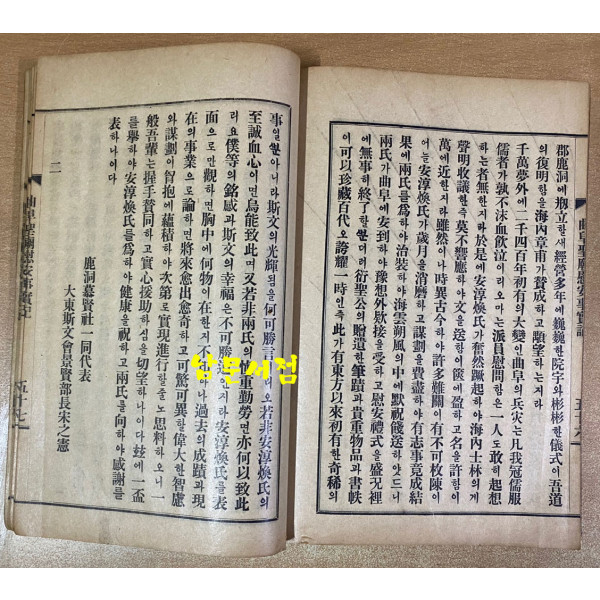 郡鹿洞에刱立할새經營多年에巍巍한院宇와彬彬한儀式이吾道
의復明함을海內章甫가賛成하고顒望하는지라
千萬夢外에二千四百年初有의大變인曲阜의兵灾는凡我冠儒服
儒者가孰不沫血飮泣이리오마는派員慰問함은一人도敢히起想
하는者無한지라於是에安淳煥氏가奮然蹶起하야海內士林의게
聲明收議한즉莫不響應하야文을送함이篋에盈하고名을許함이
萬에近한지라雖然이나時異古今하야許多難關이有不可枚陳이
어늘安淳煥氏가歲月을消磨하고謀劃을費盡하야有志事竟成結
果에兩氏를爲하야法裝하야海雲朔風의中에默祝餞送하얏드니
兩氏가曲阜에安到하야豫想外欵接을受하고慰安禮式을盛况裡
에無事히終了할뿐며러衍聖公의贈遺한筆蹟과貴重物品과書帙
이可以珍藏百代오誇耀一時인즉此가有東方以來初有한奇稀의
曲阜聖廟慰安事實記
五十六
事일뿐아니라斯文의光輝됨을何可勝言
오若非安淳煥氏의
至誠血心이면烏能致此며又若非兩氏의
重勤勞면亦何以致此
리요僕等의銘感과斯文의幸福은不可勝
安淳煥氏를表
面으로만觀하면胸中에何物이在한지不
나過去의成蹟과現
在의事業으로論하면將來愈出愈奇하고可驚可異할偉大한智慮
와謀劃이胷抱에蘊積하야次第로實現進行할줄노思料하오니一
般吾輩는握手賛同하고實心援助하심을切望하나이다玆에一盃
를擧하야安淳煥氏를爲하야健康을祝하고兩氏를向하야感謝를
表하나이다
鹿洞慕賢社一同代表
大東斯文會景賢部長朱之憲
二
曲阜聖廟慰安事實記
五十七
남문서점